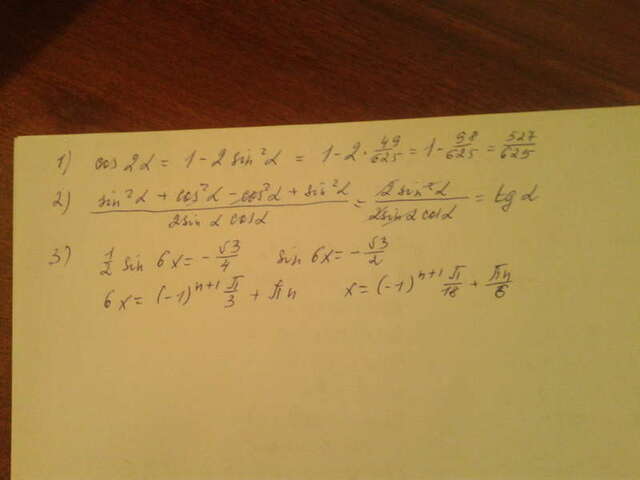 1) cos 2α = 1 - 2 sin²α = 1 - 2 · 49/625 = 1 - 98/625 = 527/625
2) (sin²α + cos²α - cos²α + sin²α)/(2sin α cosα) = (2 sin²α)/(2sin α cosα) = tg α
3) 1/2 sin 6x = - √3/4 sin 6x = - √3/2
6x = (-1)ⁿ⁺¹ π/3 + πn x = (-1)ⁿ⁺¹ π/18 + πn/6